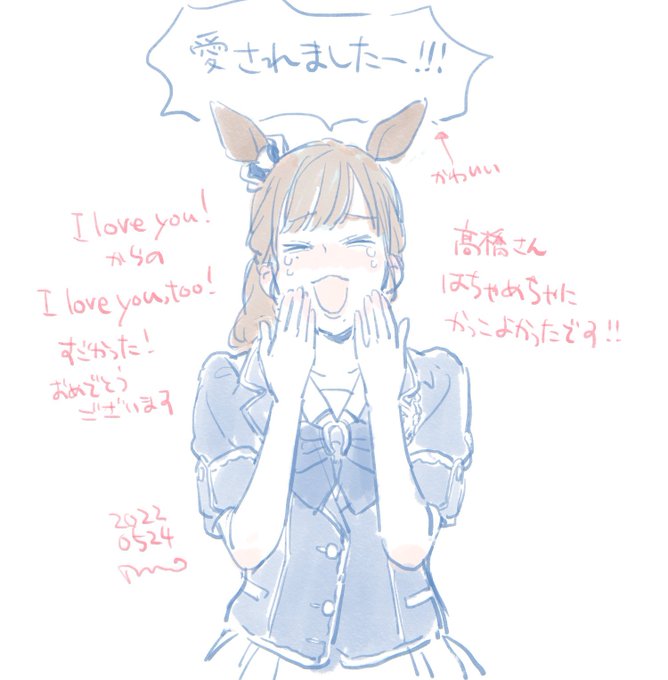 愛されましたー!!!
かわいい
I love you!
からの
I love you, too!
すごかった!
おめでとう
ございます
髙橋さん
はちゃめちゃに
かっこよかったです!!
2022
0524